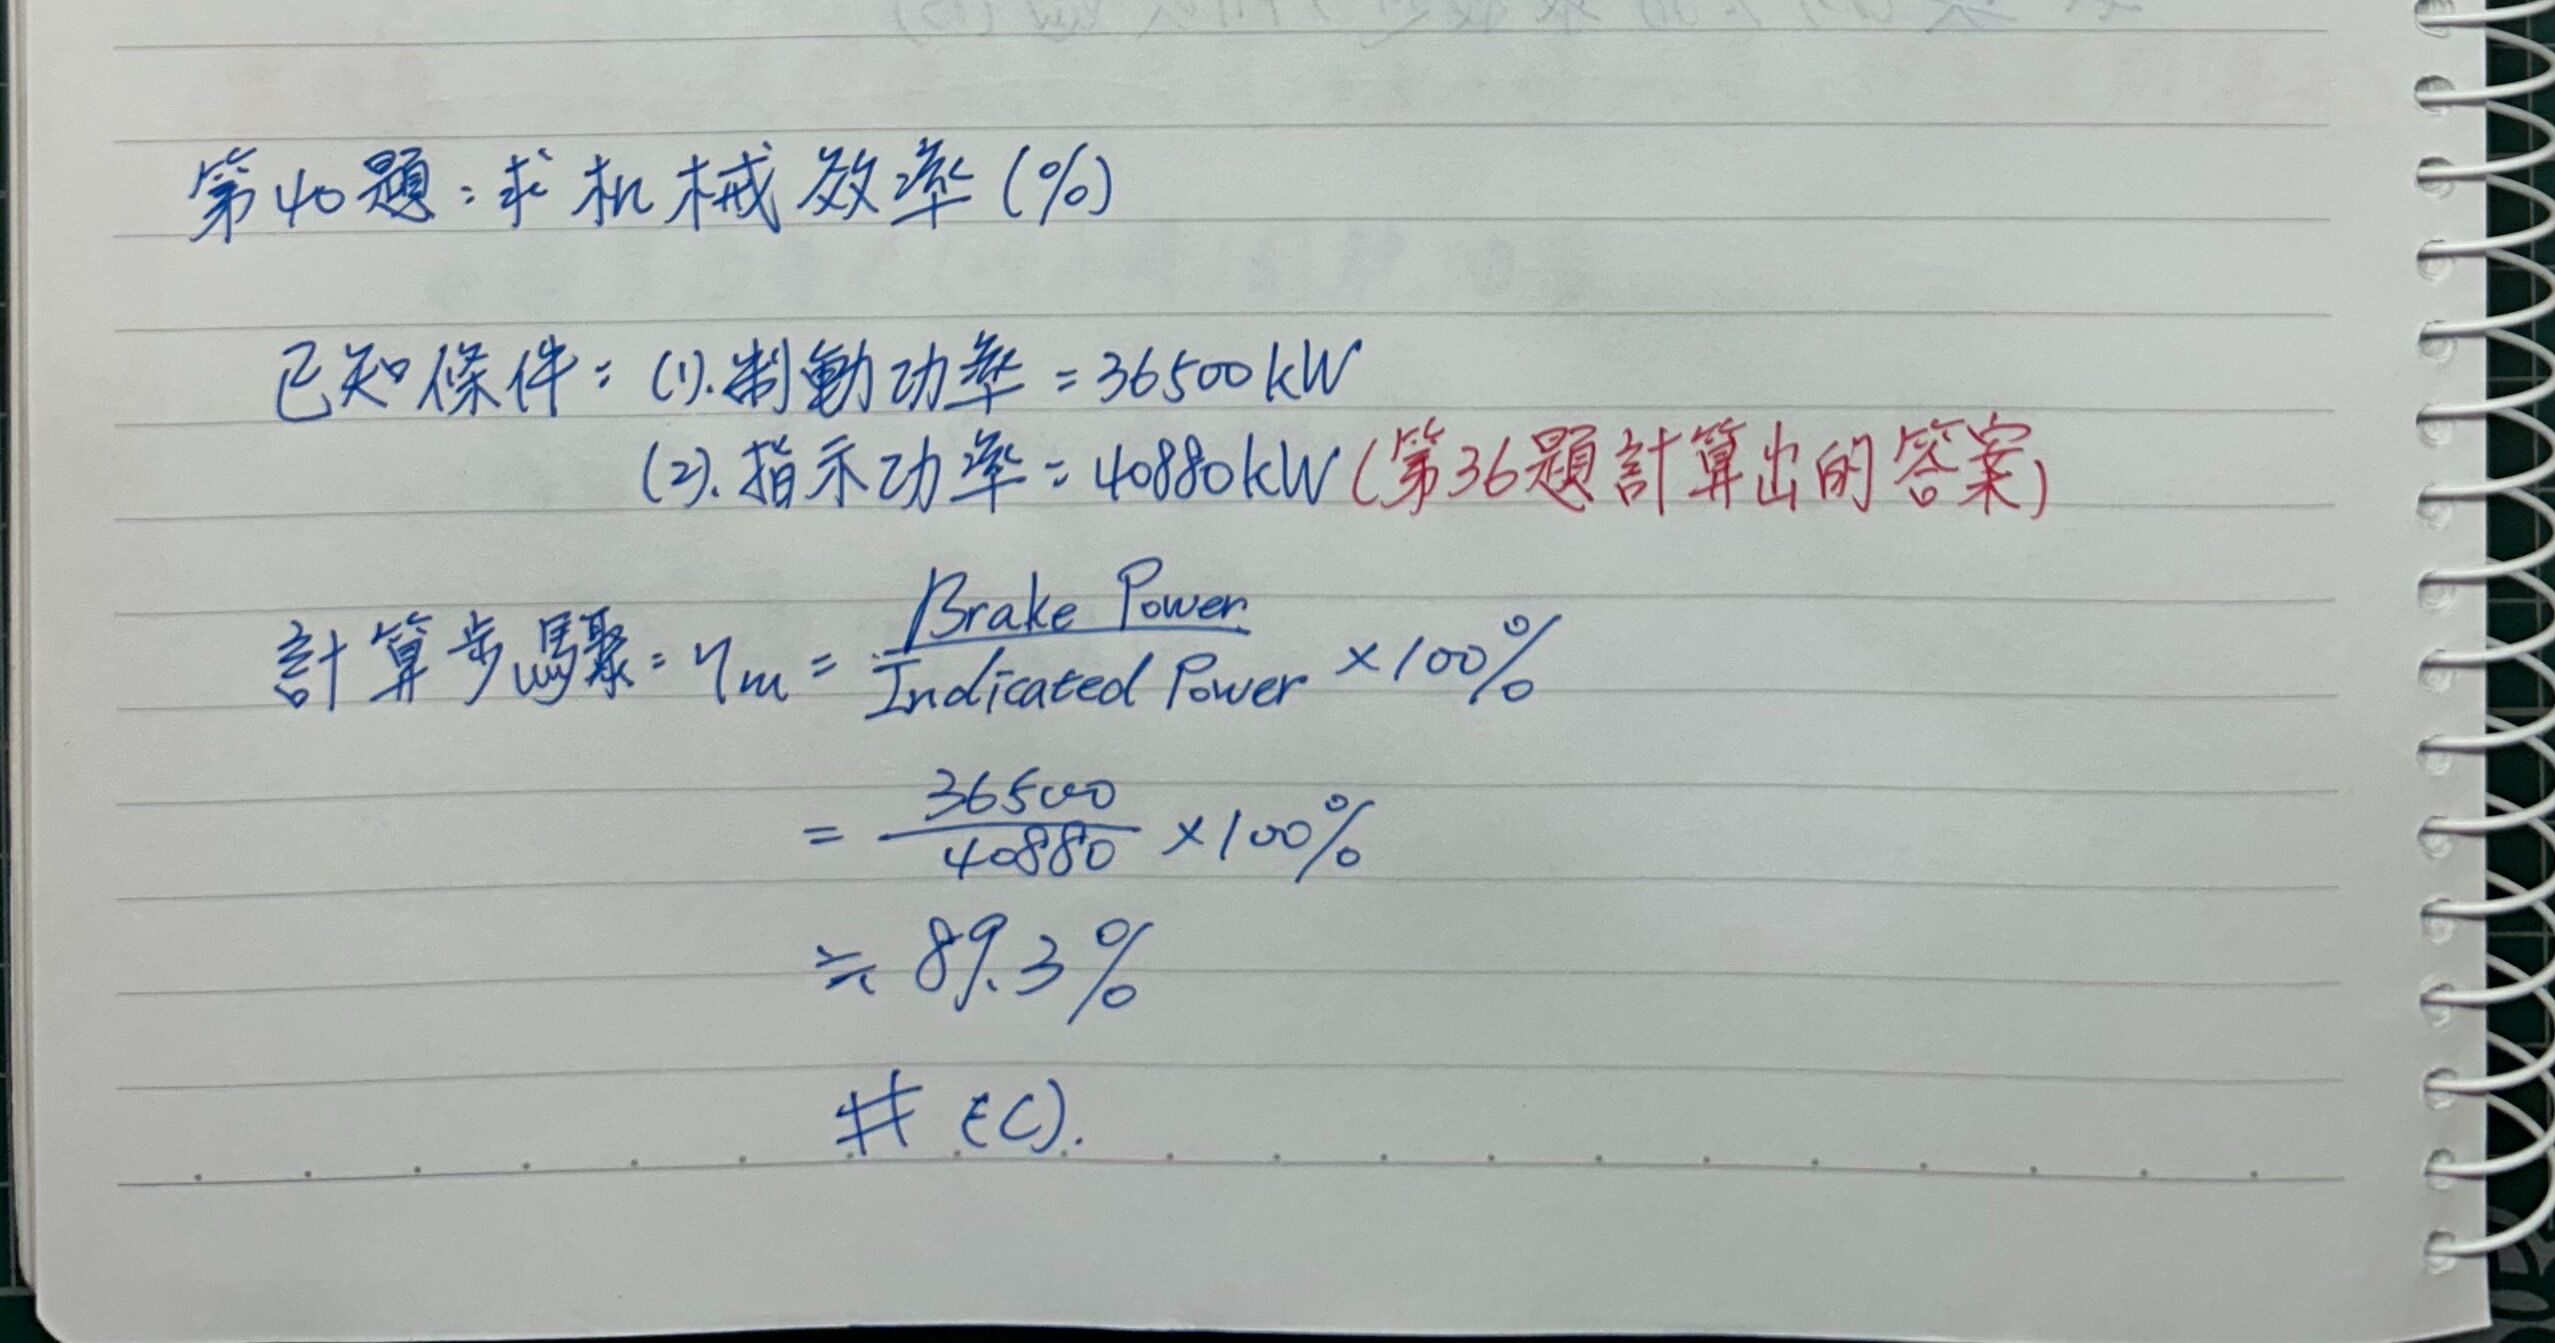 第40題:求机械效率(%)
已知條件:(1).制動功率=36500kW
(2).指示功率=40880kW(第36題計算出的答案)
計算步驟:ηm=Brake Power/Indicated Power×100%
=36500/40880×100%
≒89.3%
#(C).